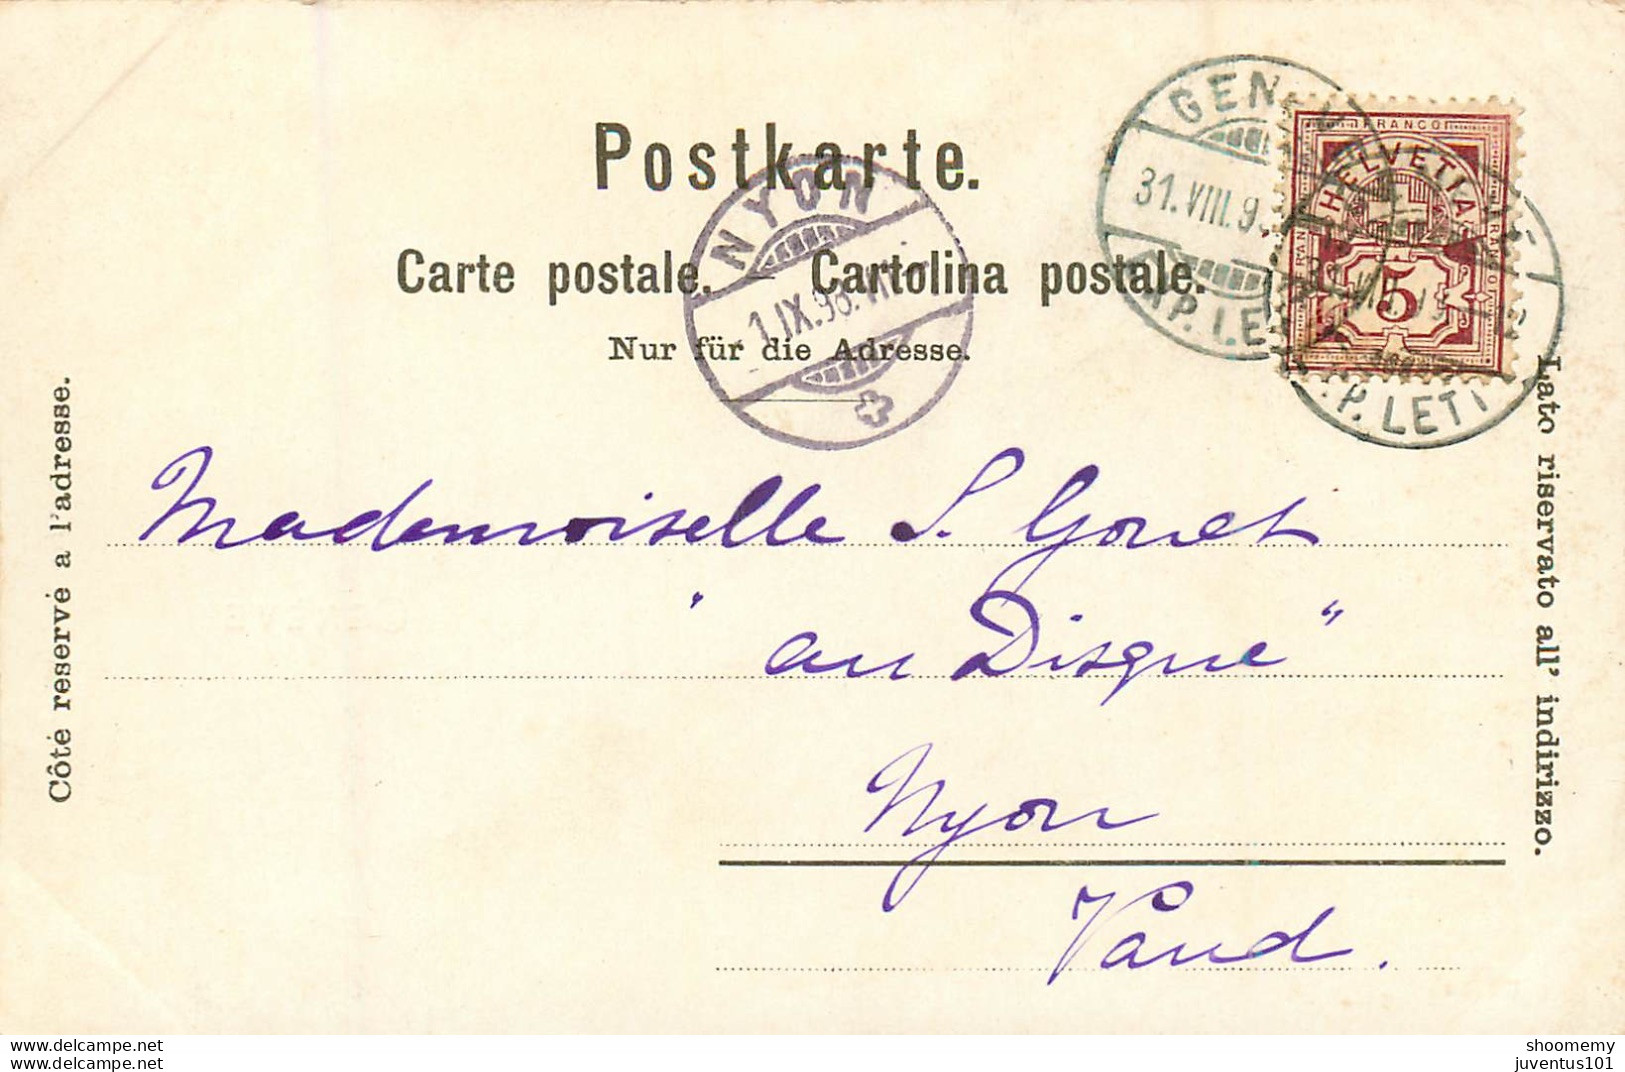 Postkarte.
Carte postale. – Cartolina postale.
Nur für die Adresse.
NYON
1.IX.98.VII
31.VIII.9
FRANCO
HELVETIA
5
P. LET
Côté reservé à l'adresse.
Lato riservato all' indirizzo.
Mademoiselle S. Gonet
"au Disque"
Nyon
Vaud.
www.delcampe.net
www.delcampe.net
shoomemy
juventus101